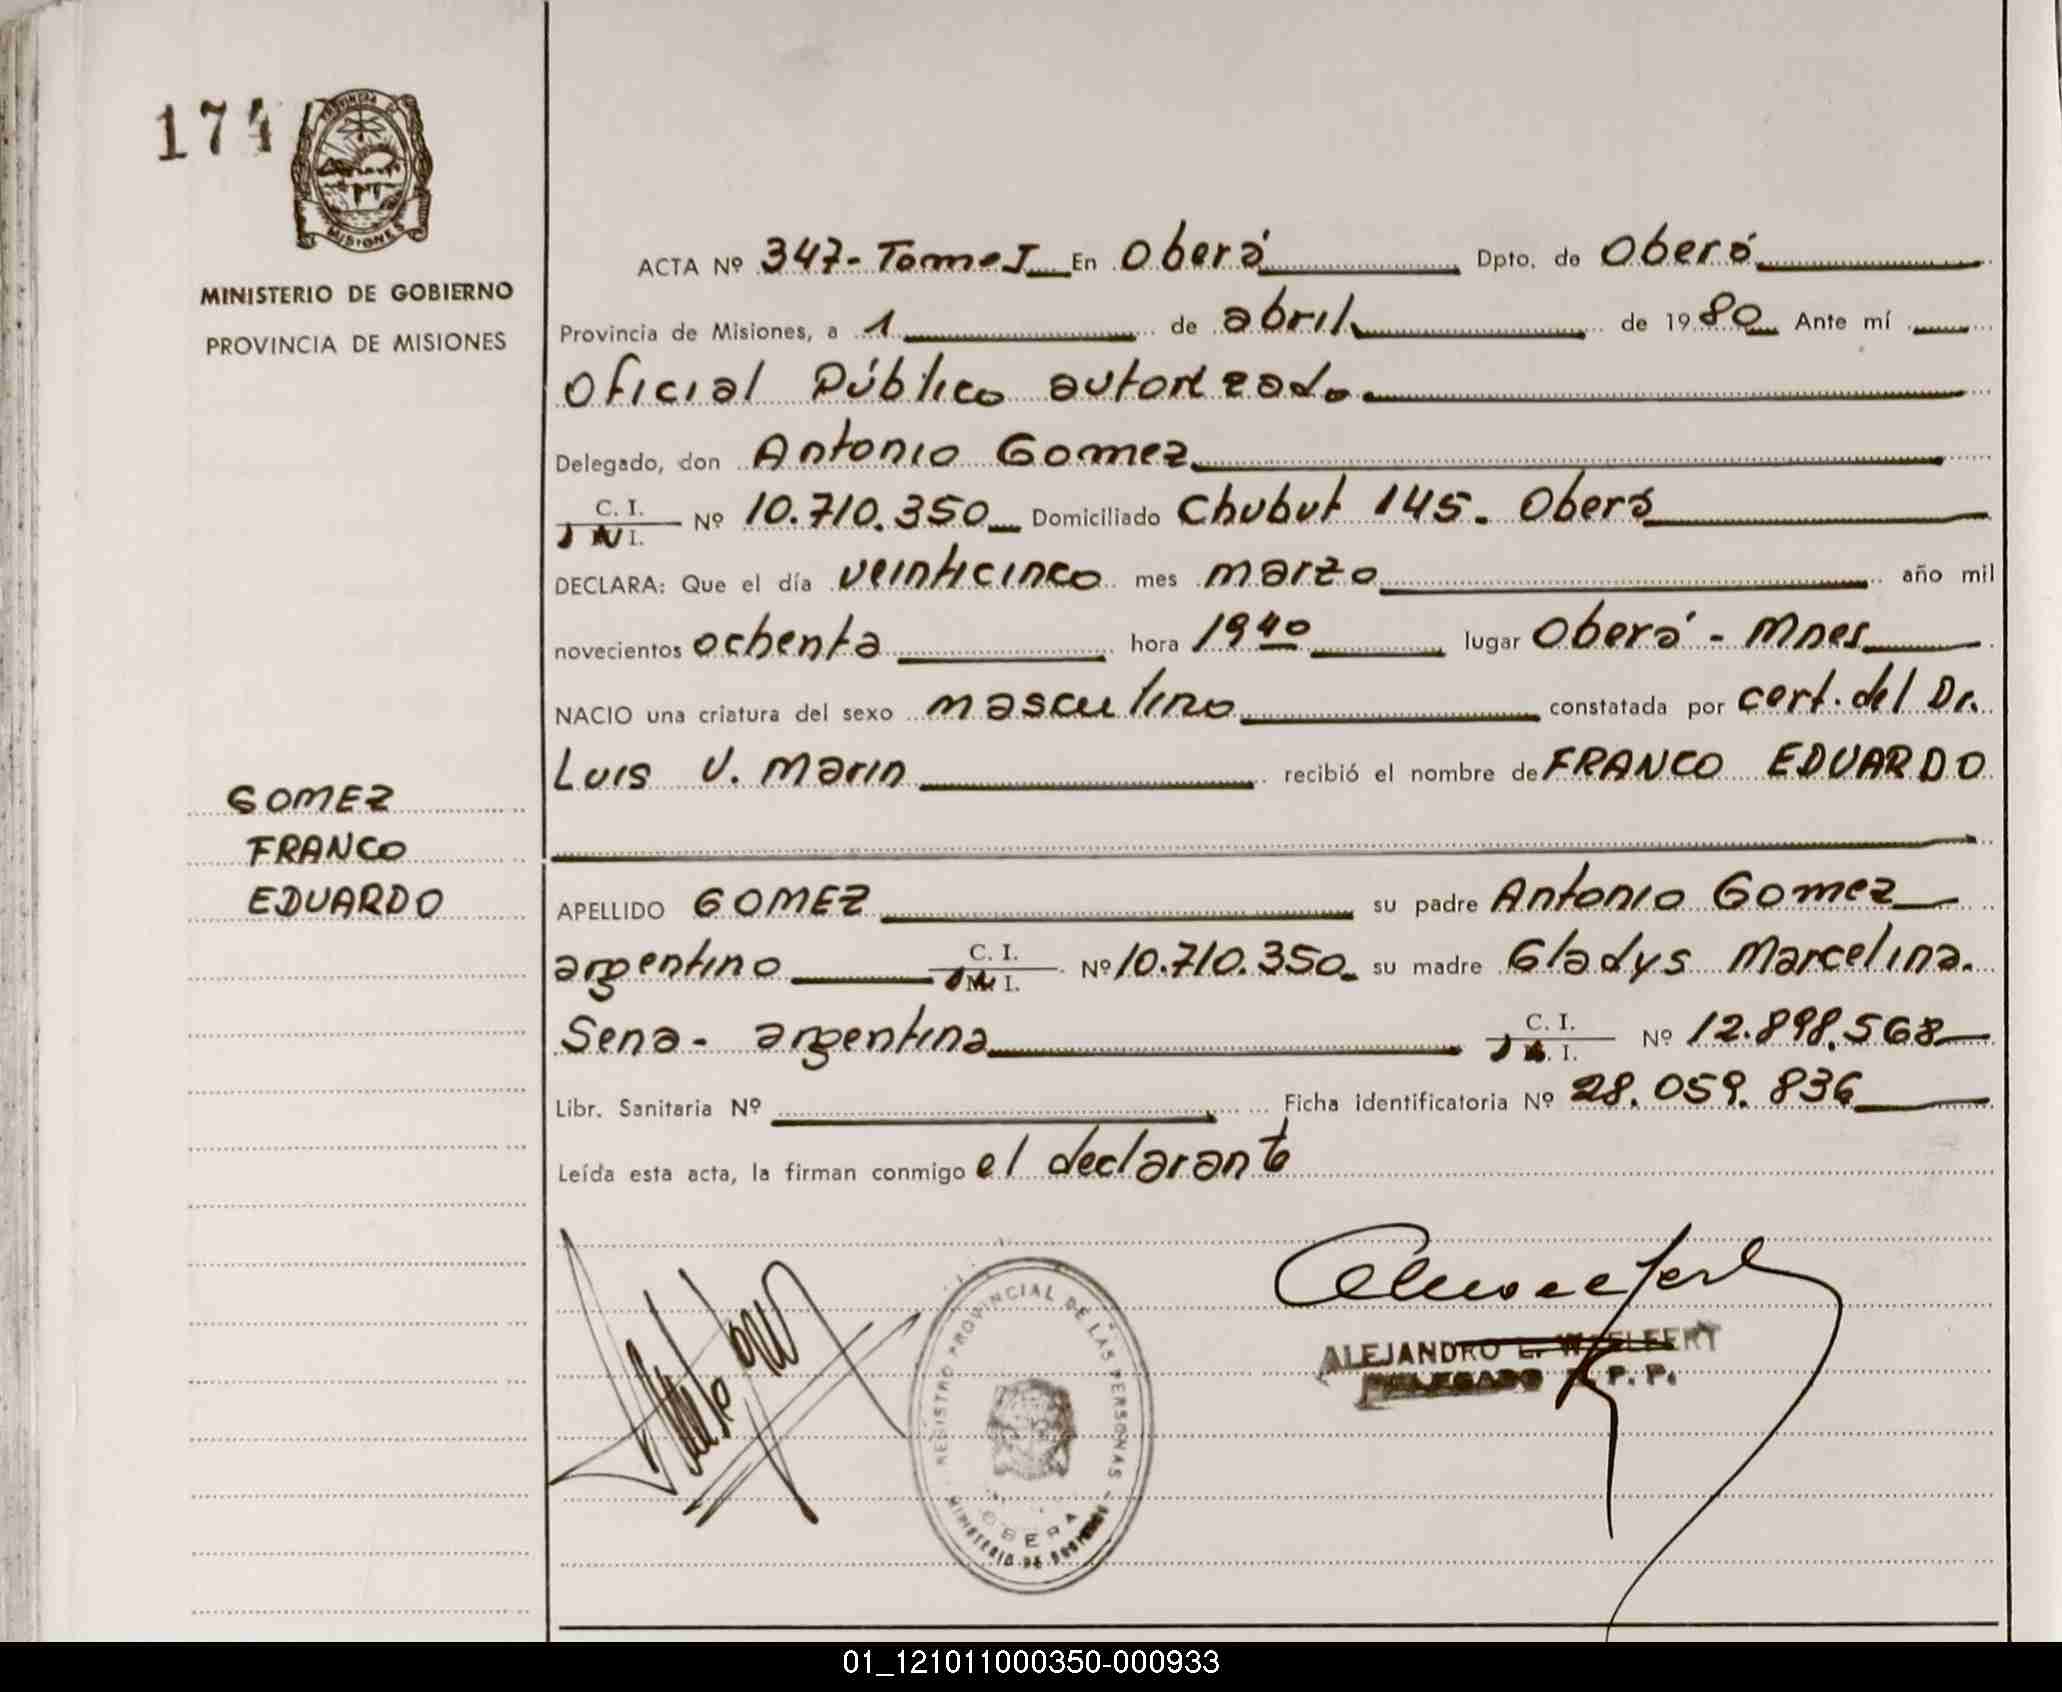 174
PROVINCIA DE
MISIONES
MINISTERIO DE GOBIERNO
PROVINCIA DE MISIONES
GOMEZ
FRANCO
EDUARDO
ACTA Nº 347-Tomo I En Oberá Dpto. de Oberá
Provincia de Misiones, a 1 de abril de 1980 Ante mí
Oficial Público autorizado
Delegado, don Antonio Gomez
C. I. Nº 10.710.350 Domiciliado Chubut 145. Oberá
I.
DECLARA: Que el día veinticinco mes marzo año mil
novecientos ochenta hora 19 40 lugar Oberá - Mnes
NACIO una criatura del sexo masculino constatada por cert. del Dr.
Luis V. Marin recibió el nombre de FRANCO EDUARDO
APELLIDO GOMEZ su padre Antonio Gomez
argentino C. I. Nº 10.710.350 su madre Gladys Marcelina
M. I.
Sena - argentina C. I. Nº 12.898.568
I.
Libr. Sanitaria Nº Ficha identificatoria Nº 28.059.836
Leída esta acta, la firman conmigo el declarante
REGISTRO PROVINCIAL DE LAS PERSONAS
OBERA
MINISTERIO DE GOBIERNO
ALEJANDRO L.
DELEGADO R. P. P.
01_121011000350-000933